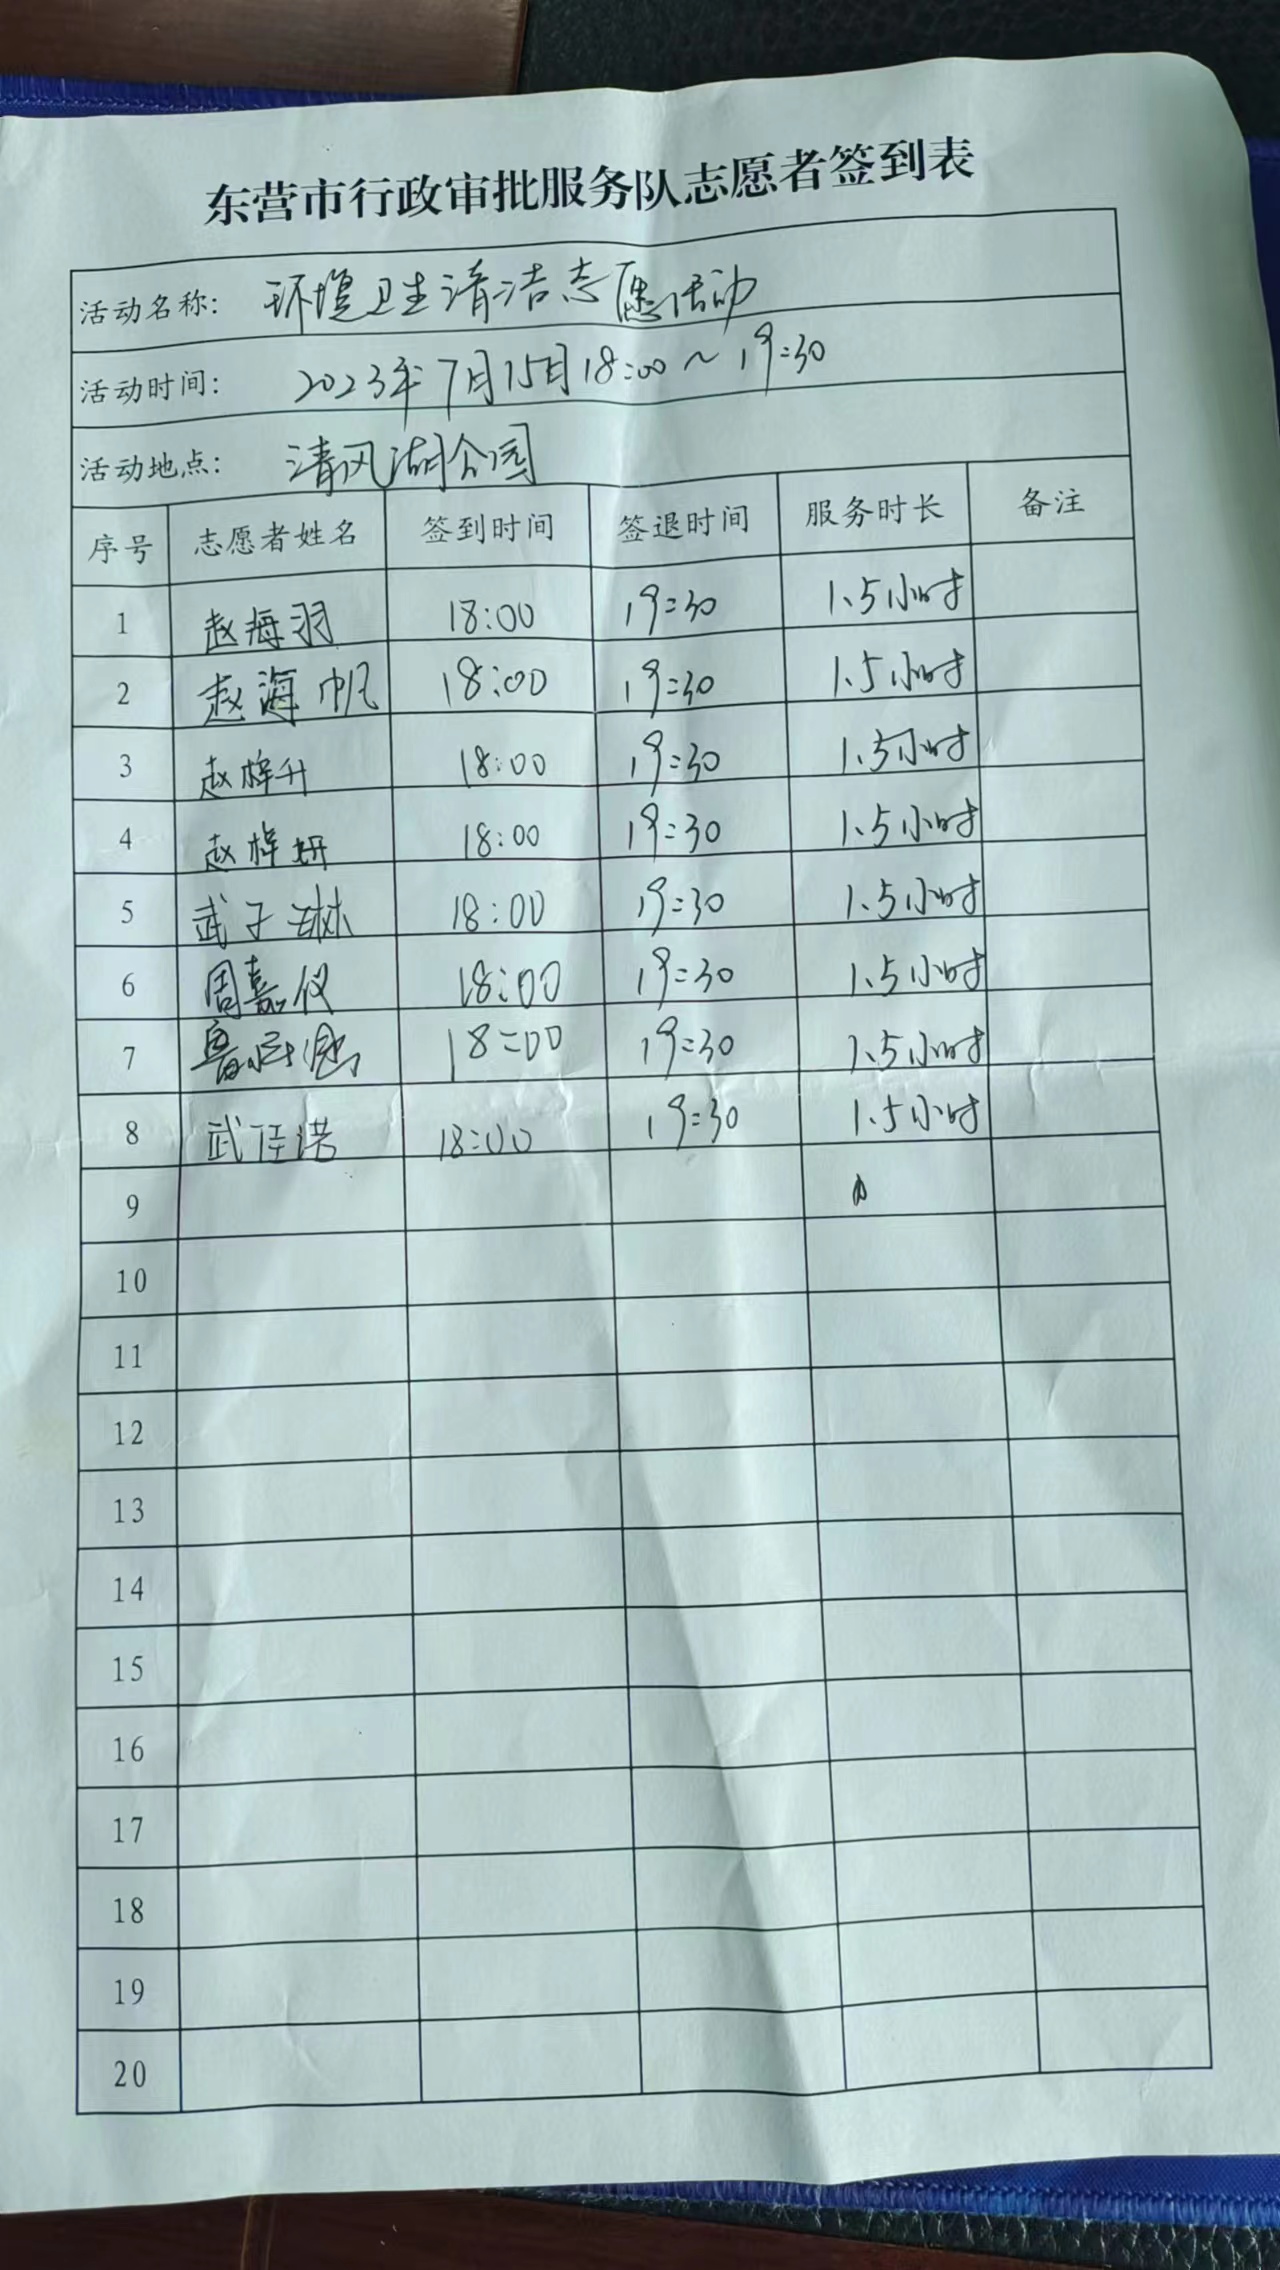 东营市行政审批服务队志愿者签到表
活动名称: 环境卫生清洁志愿活动
活动时间: 2023年7月15日18:00～19:30
活动地点: 清风湖公园
序号 志愿者姓名 签到时间 签退时间 服务时长 备注
1 赵海羽 18:00 19:30 1.5小时
2 赵海帆 18:00 19:30 1.5小时
3 赵梓升 18:00 19:30 1.5小时
4 赵梓妍 18:00 19:30 1.5小时
5 武子琳 18:00 19:30 1.5小时
6 周嘉仪 18:00 19:30 1.5小时
7 鲁 18:00 19:30 1.5小时
8 武佳诺 18:00 19:30 1.5小时
9
10
11
12
13
14
15
16
17
18
19
20